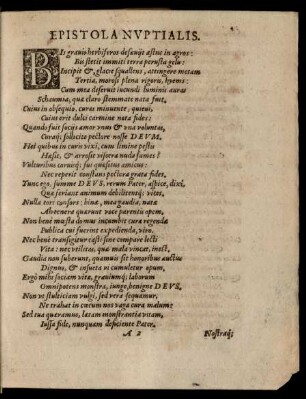 EPISTOLA NVPTIALIS.
BIs grauis herbiferos desæuijt æstus in agros:
Bis stetit immiti terra perusta gelu:
Incipit &, glacie squallens, attingere metam
Tertia, morosi plena rigoris, hyems:
Cum mea deseruit iucundi luminis auras
Schaumia, quæ claro stemmate nata fuit,
Cuius in obsequio, curis minuente, quieui,
Cuius erit dulci carmine nota fides:
Quando fuit socijs amor vnus & vna voluntas,
Curaq; sollicito pectore nosse DEVM.
Hei quibus in curis vixi, cum limine postis
Hæsit, & arrosit viscera nuda fames?
Vulturibus coruisq; fui quæsitus amicus:
Nec reperit constans pectora grata fides,
Tunc ego, summe DEVS, verum Pater, aspice, dixi,
Quæ feriant animum debilitentq; vices,
Nulla tori consors: binæ, mea gaudia, natæ
Alternera quærunt voce parentis opem,
Non bene mœsta domus incumbit cura regenda
Publica cui fuerint expedienda, viro.
Nec bene transigitur casti sine compare lecti
Vita: nec vtilitas quæ mala vincat, inest.
Gaudia non subeunt, quamuis sit honoribus auctus
Dignus, & insueta vi cumuletur opum.
Ergò mihi sociam vitæ, grauiumq; laborum
Omnipotens monstra, iunge, benigne DEVS,
Non vt stultitiam vulgi, sed vera sequamur.
Ne trahat in cœcum nos vaga cura malum:
Sed tua quæramus, lætam monstrantia vitam,
Iussa fide, nunquam deficiente Pater.
A 2 Nostraq;